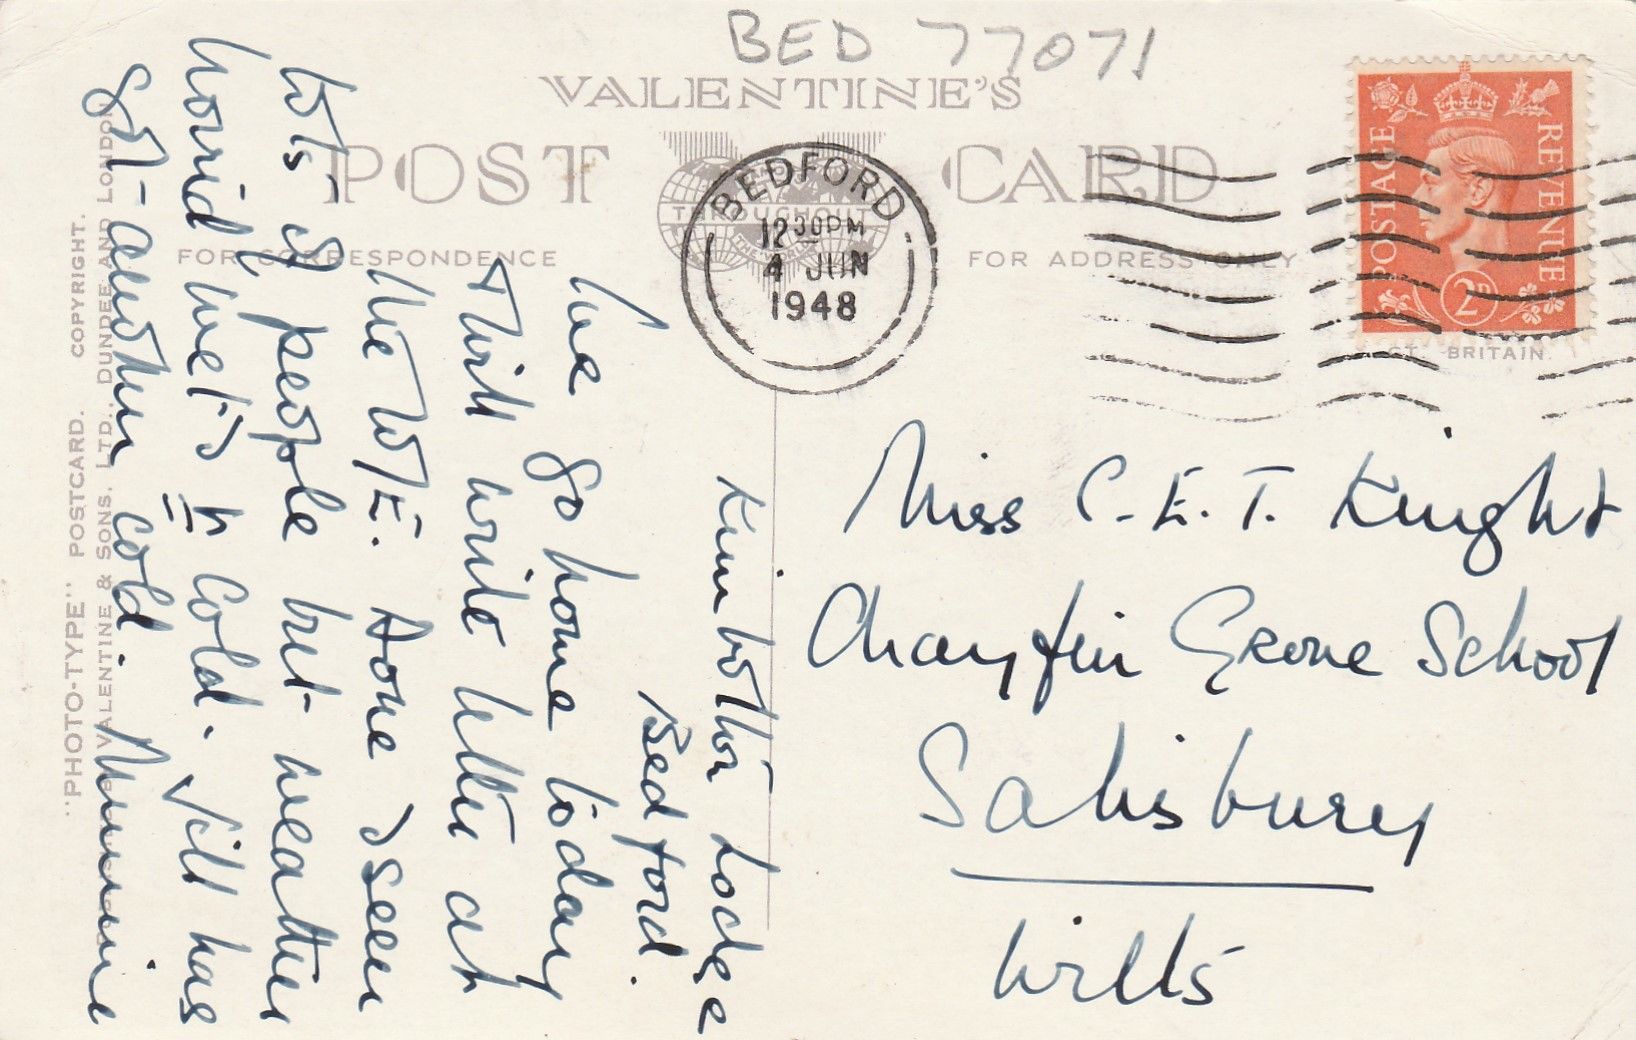 BED 77071
VALENTINE'S
POST CARD
THROUGHOUT
THE WORLD
FOR CORRESPONDENCE
FOR ADDRESS ONLY
BEDFORD
12 30PM
4 JUN
1948
POSTAGE
REVENUE
2D
GT. BRITAIN.
"PHOTO-TYPE" POSTCARD. COPYRIGHT.
VALENTINE & SONS, LTD., DUNDEE AND LONDON
Kimbolton Lodge
Bedford.
We go home today
& will write letter at
the W/E. Have seen
lots of people but weather
horrid wet & cold. Jill has
got another cold. Mummie
Miss C.E.T. Knight
Chafyn Grove School
Salisbury
Wilts